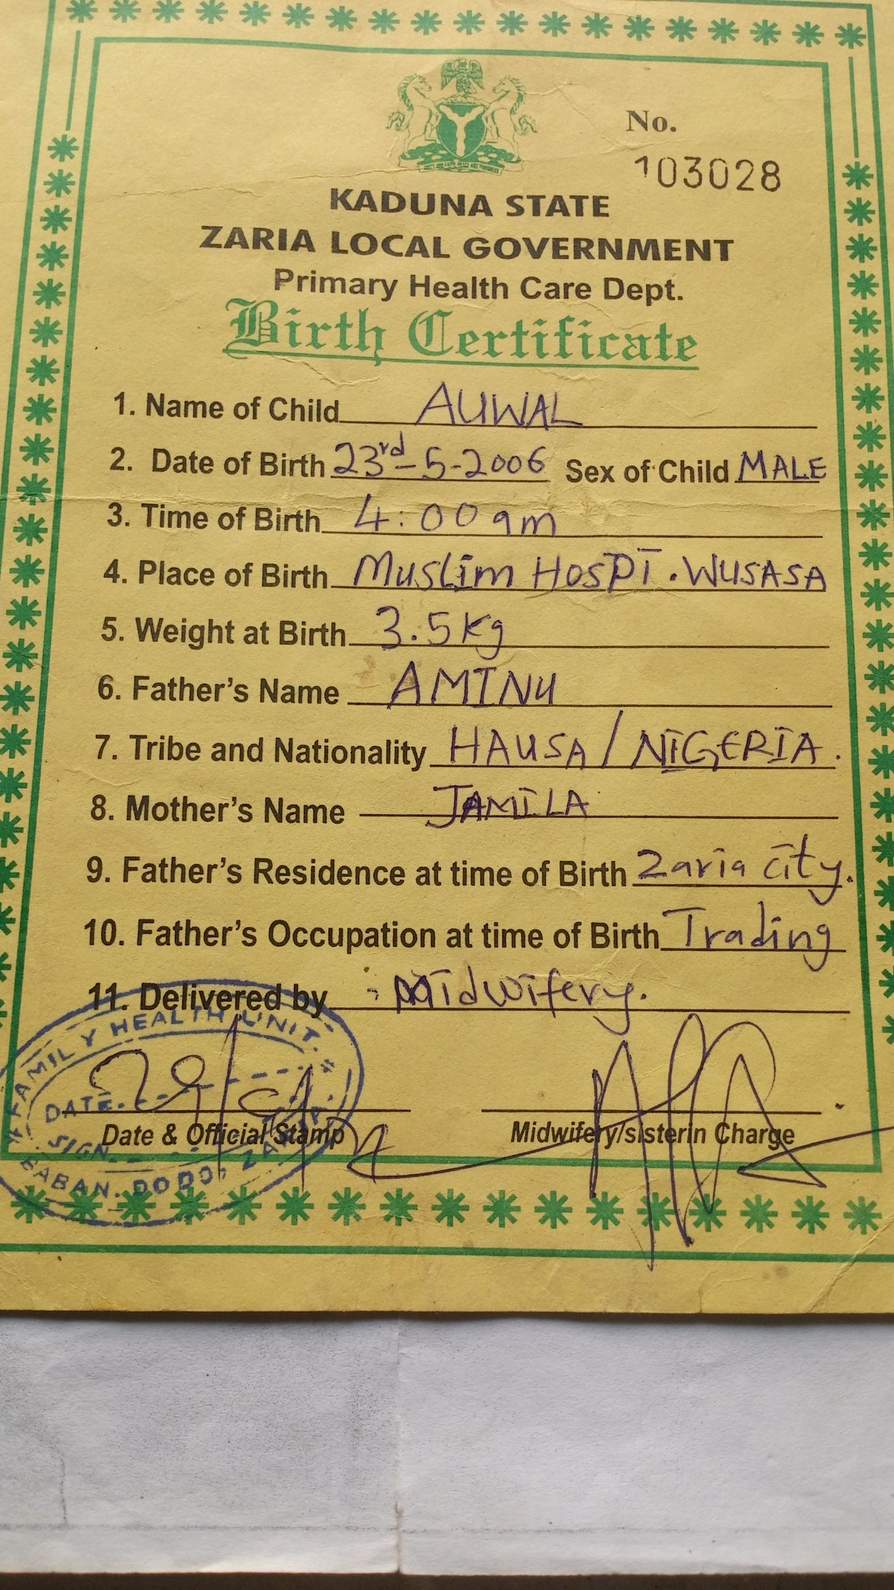 No.
103028
KADUNA STATE
ZARIA LOCAL GOVERNMENT
Primary Health Care Dept.
Birth Certificate
1. Name of Child AUWAL
2. Date of Birth 23rd-5-2006 Sex of Child MALE
3. Time of Birth 4:00am
4. Place of Birth Muslim HOSPI. WUSASA
5. Weight at Birth 3.5kg
6. Father's Name AMINU
7. Tribe and Nationality HAUSA/NIGERIA.
8. Mother's Name JAMILA
9. Father's Residence at time of Birth Zaria city.
10. Father's Occupation at time of Birth Trading
11. Delivered by : Midwifery.
FAMILY HEALTH UNIT.
DATE
SIGN
BABAN DODO, ZARIA.
Date & Official Stamp Midwifery/sisterin Charge